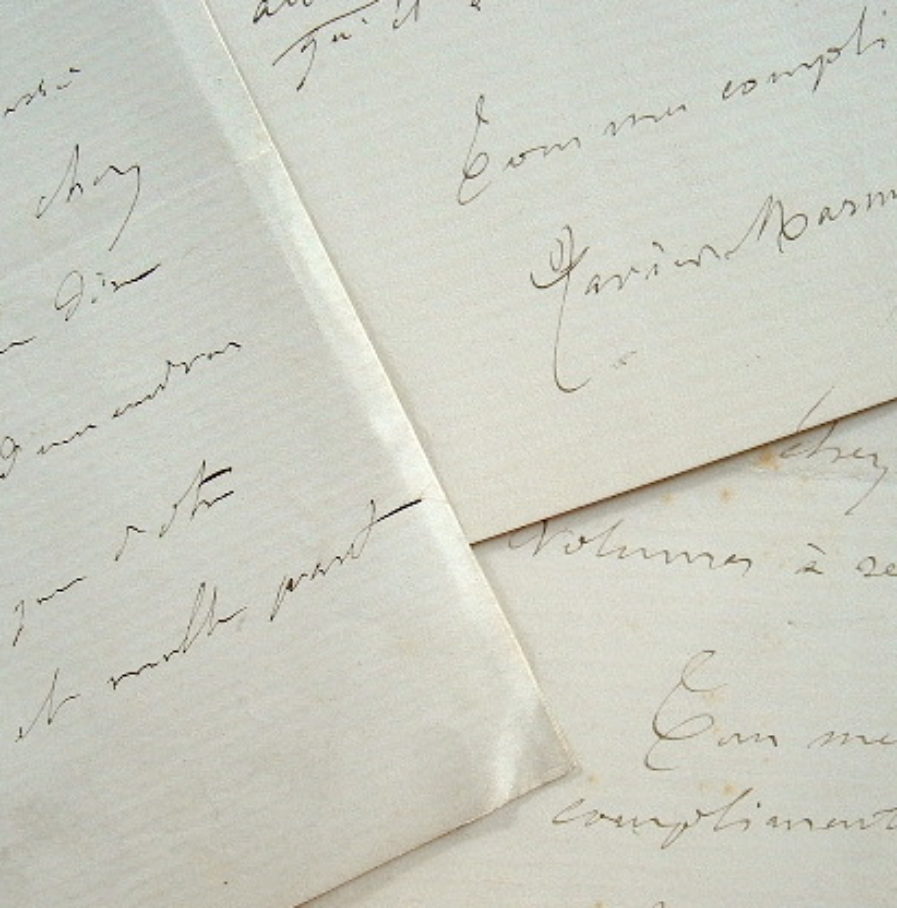 chez
dire
demandons
que votre
et nulle part
qu'il
Tous mes compli
Xavier Marm
chez
volumes à re
Tous me
compliment